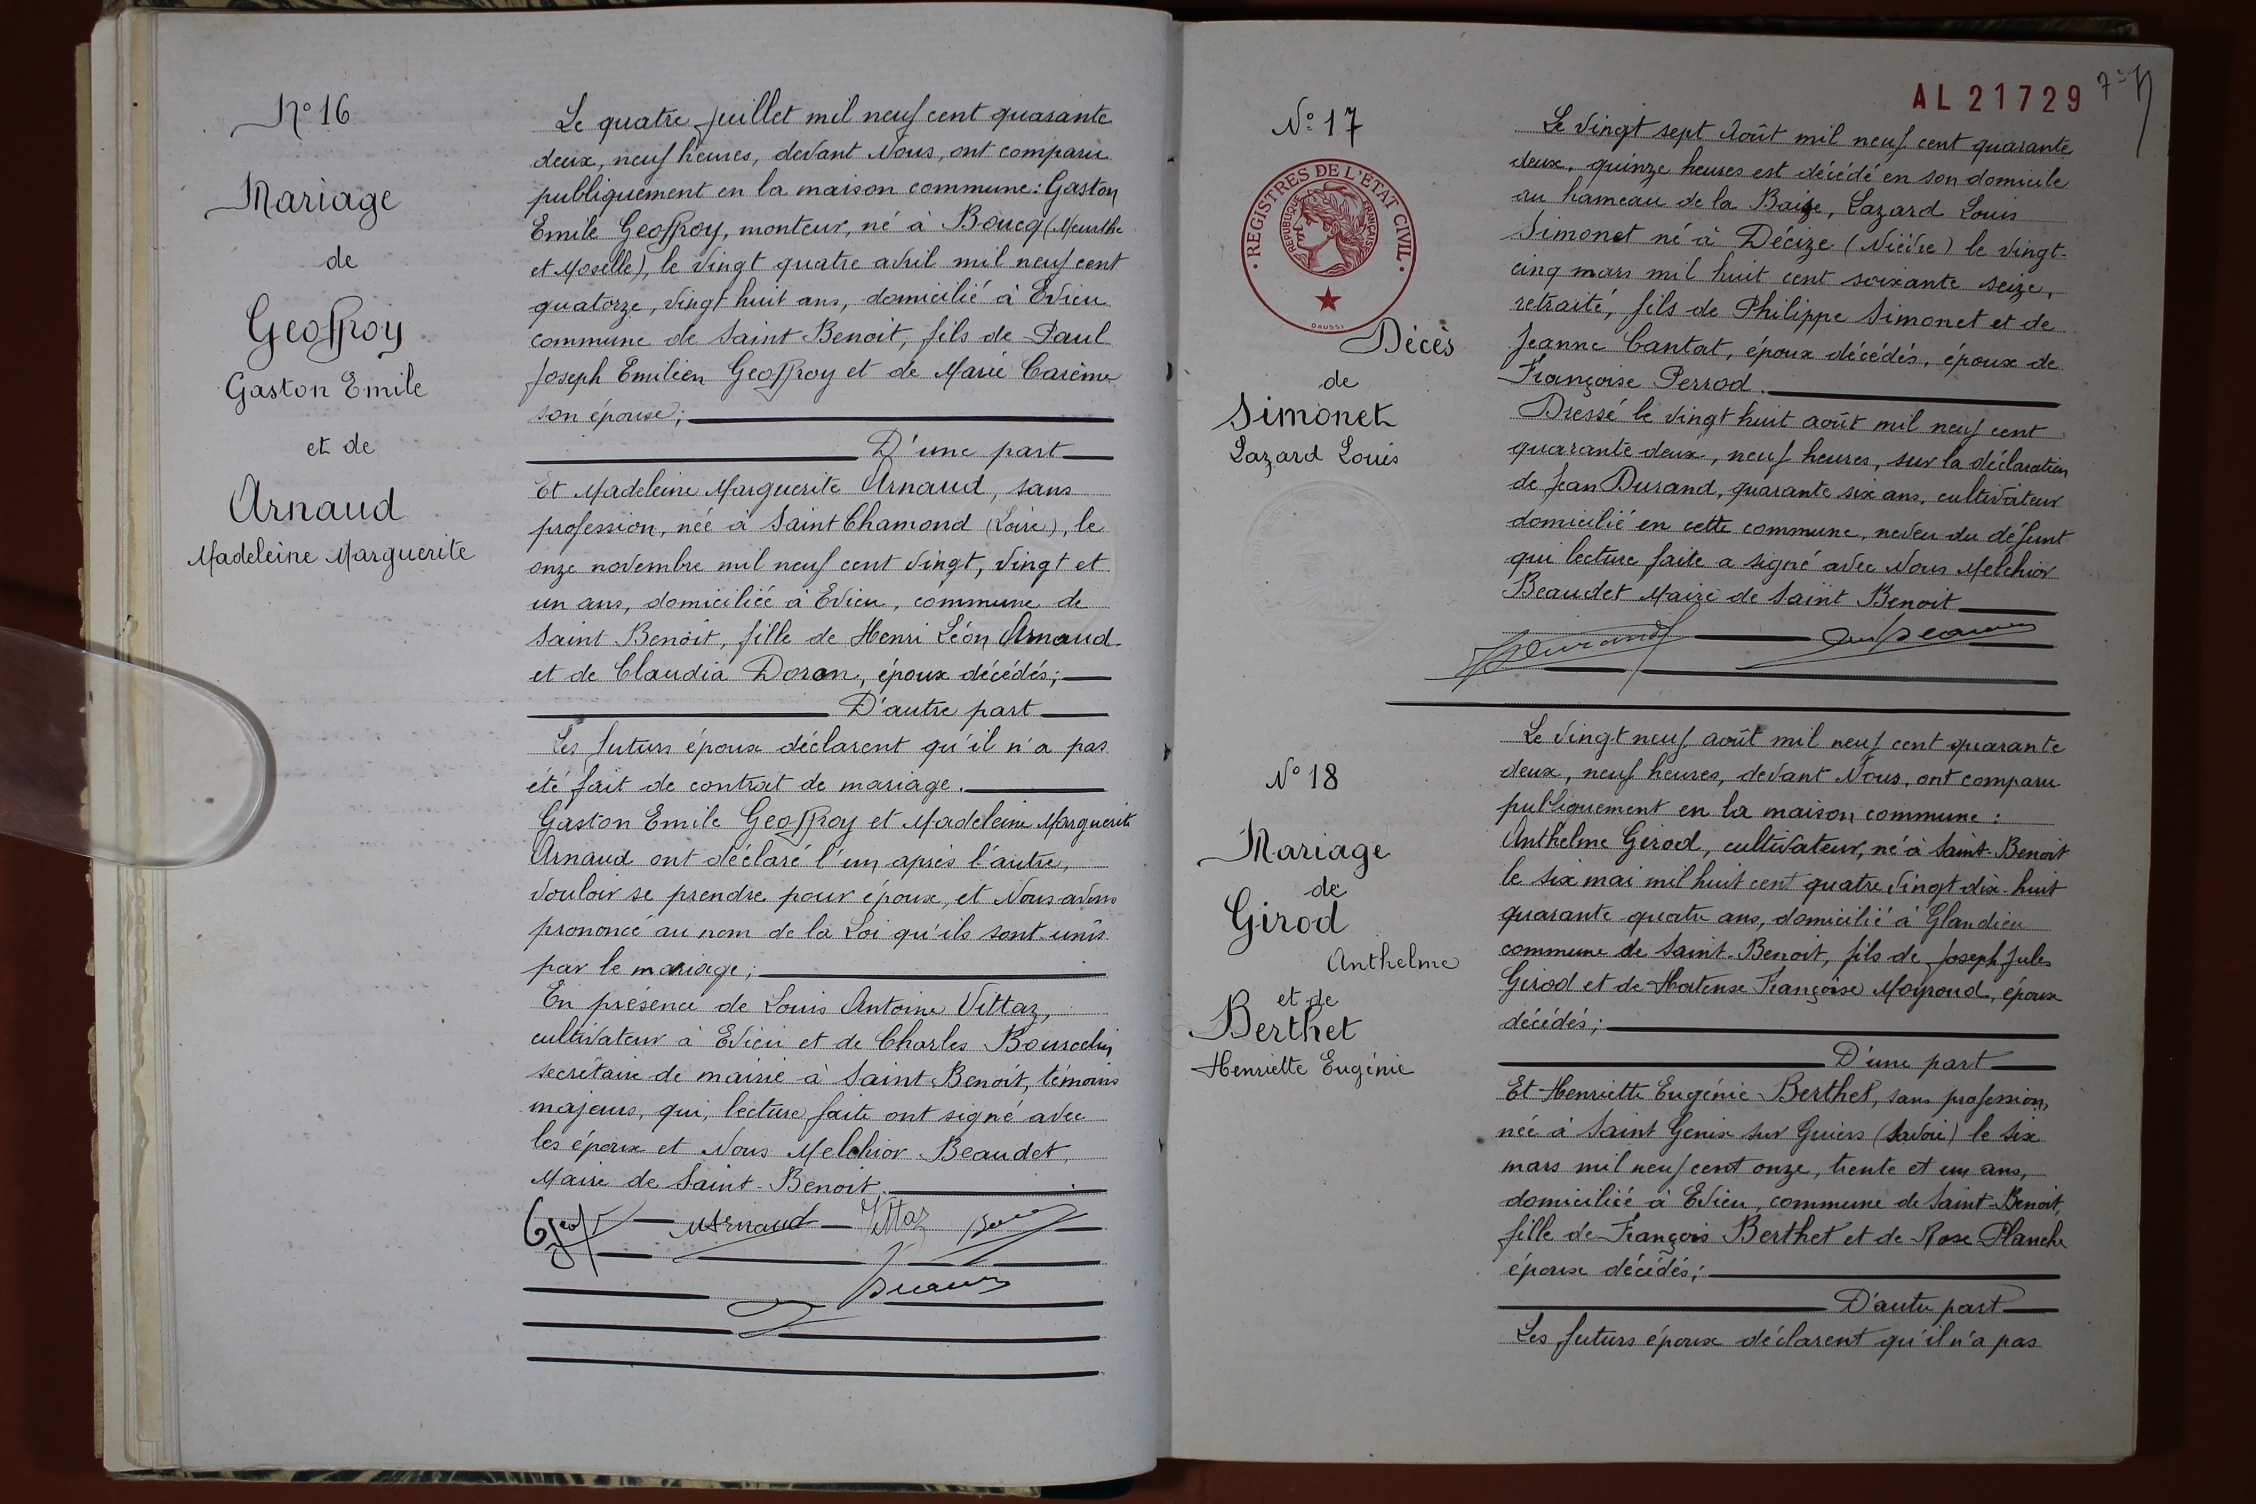 N° 16
Mariage
de
Geoffroy
Gaston Emile
et de
Arnaud
Madeleine Marguerite
Le quatre Juillet mil neuf cent quarante
deux, neuf heures, devant Nous, ont comparu
publiquement en la maison commune : Gaston
Emile Geoffroy, monteur, né à Boucq (Meurthe
et Moselle), le vingt quatre avril mil neuf cent
quatorze, vingt huit ans, domicilié à Evieu
commune de Saint-Benoit, fils de Paul
Joseph Emilien Geoffroy et de Marie Carême
son épouse ;
D'une part
Et Madeleine Marguerite Arnaud, sans
profession, née à Saint Chamond (Loire), le
onze novembre mil neuf cent vingt, vingt et
un ans, domiciliée à Evieu, commune de
Saint Benoit, fille de Henri Léon Arnaud
et de Claudia Doron, époux décédés ;
D'autre part
Les futurs époux déclarent qu'il n'a pas
été fait de contrat de mariage.
Gaston Emile Geoffroy et Madeleine Marguerite
Arnaud ont déclaré l'un après l'autre,
vouloir se prendre pour époux, et Nous avons
prononcé au nom de la Loi qu'ils sont unis
par le mariage ;
En présence de Louis Antoine Vittaz,
cultivateur à Evieu et de Charles Bourcelin
secrétaire de mairie à Saint Benoit, témoins
majeurs, qui, lecture faite ont signé avec
les époux et Nous Melchior Beaudet,
Maire de Saint-Benoit.
MArnaud Vittaz
AL 21729
N° 17
REGISTRES DE L'ETAT CIVIL
REPUBLIQUE FRANÇAISE
DAUSSI
Décès
de
Simonet
Lazard Louis
Le vingt sept Août mil neuf cent quarante
deux, quinze heures est décédé en son domicile
au hameau de la Baise, Lazard Louis
Simonet né à Décize (Nièvre) le vingt-
cinq mars mil huit cent soixante seize,
retraité, fils de Philippe Simonet et de
Jeanne Cantat, époux décédés, époux de
Françoise Perrod.
Dressé le vingt huit août mil neuf cent
quarante deux, neuf heures, sur la déclaration
de Jean Durand, quarante six ans, cultivateur
domicilié en cette commune, neveu du défunt
qui lecture faite a signé avec Nous Melchior
Beaudet Maire de Saint Benoit
JDurand
N° 18
Mariage
de
Girod
Anthelme
et de
Berthet
Henriette Eugénie
Le vingt neuf août mil neuf cent quarante
deux, neuf heures, devant Nous, ont comparu
publiquement en la maison commune :
Anthelme Girod, cultivateur, né à Saint-Benoit
le six mai mil huit cent quatre vingt dix-huit
quarante quatre ans, domicilié à Glandieu
commune de Saint-Benoit, fils de Joseph Jules
Girod et de Hortense Françoise Moyroud, époux
décédés ;
D'une part
Et Henriette Eugénie Berthet, sans profession,
née à Saint Genix sur Guiers (Savoie) le six
mars mil neuf cent onze, trente et un ans,
domiciliée à Evieu, commune de Saint-Benoit,
fille de François Berthet et de Rose Planche
époux décédés ;
D'autre part
Les futurs époux déclarent qu'il n'a pas